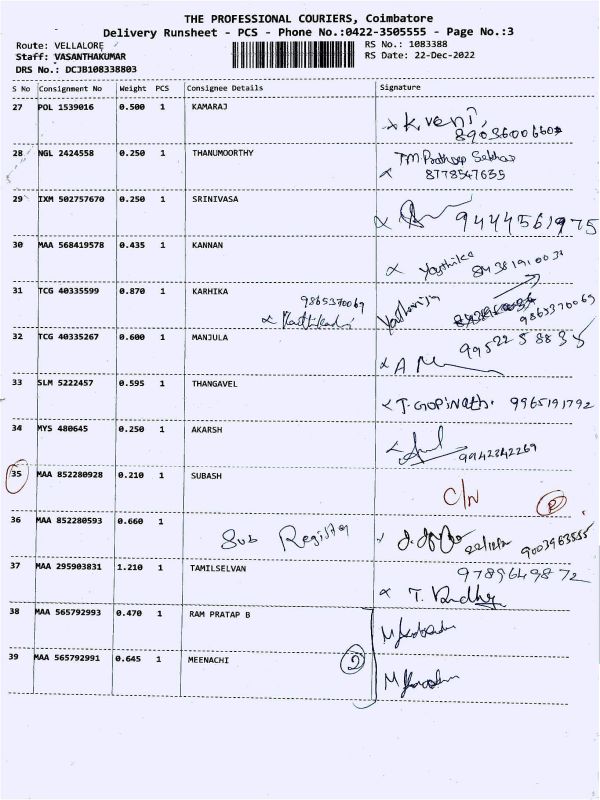 THE PROFESSIONAL COURIERS, Coimbatore
Delivery Runsheet - PCS - Phone No.:0422-3505555 - Page No.:3
Route: VELLALORE RS No.: 1083388
Staff: VASANTHAKUMAR RS Date: 22-Dec-2022
DRS No.: DCJB108338803
S No Consignment No Weight PCS Consignee Details Signature
27 POL 1539016 0.500 1 KAMARAJ
K. veni
28 NGL 2424558 0.250 1 THANUMOORTHY
8778547635
29 IXM 502757670 0.250 1 SRINIVASA
9444561975
30 MAA 568419578 0.435 1 KANNAN
31 TCG 40335599 0.870 1 KARHIKA
9865370069
9865370069
32 TCG 40335267 0.600 1 MANJULA
33 SLM 5222457 0.595 1 THANGAVEL
T. GOPINATH. 9965191792
34 MYS 480645 0.250 1 AKARSH
9942342269
35 MAA 852280928 0.210 1 SUBASH
C/N
36 MAA 852280593 0.660 1
Sub Register 9003963555
37 MAA 295903831 1.210 1 TAMILSELVAN
9789649872
38 MAA 565792993 0.470 1 RAM PRATAP B
39 MAA 565792991 0.645 1 MEENACHI
2